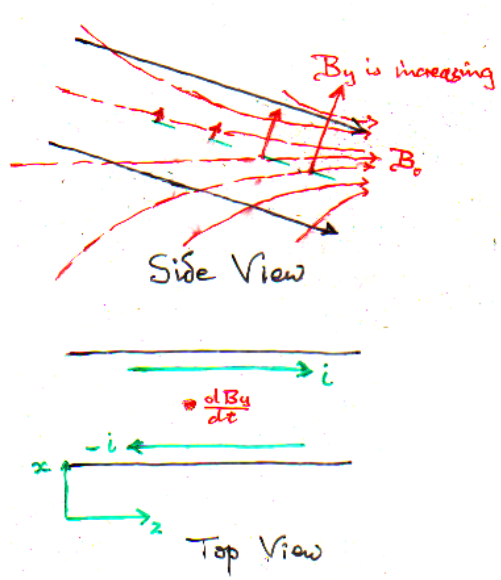 By is increasing
B₀
Side View
i
dBy
dt
-i
x
z
Top View